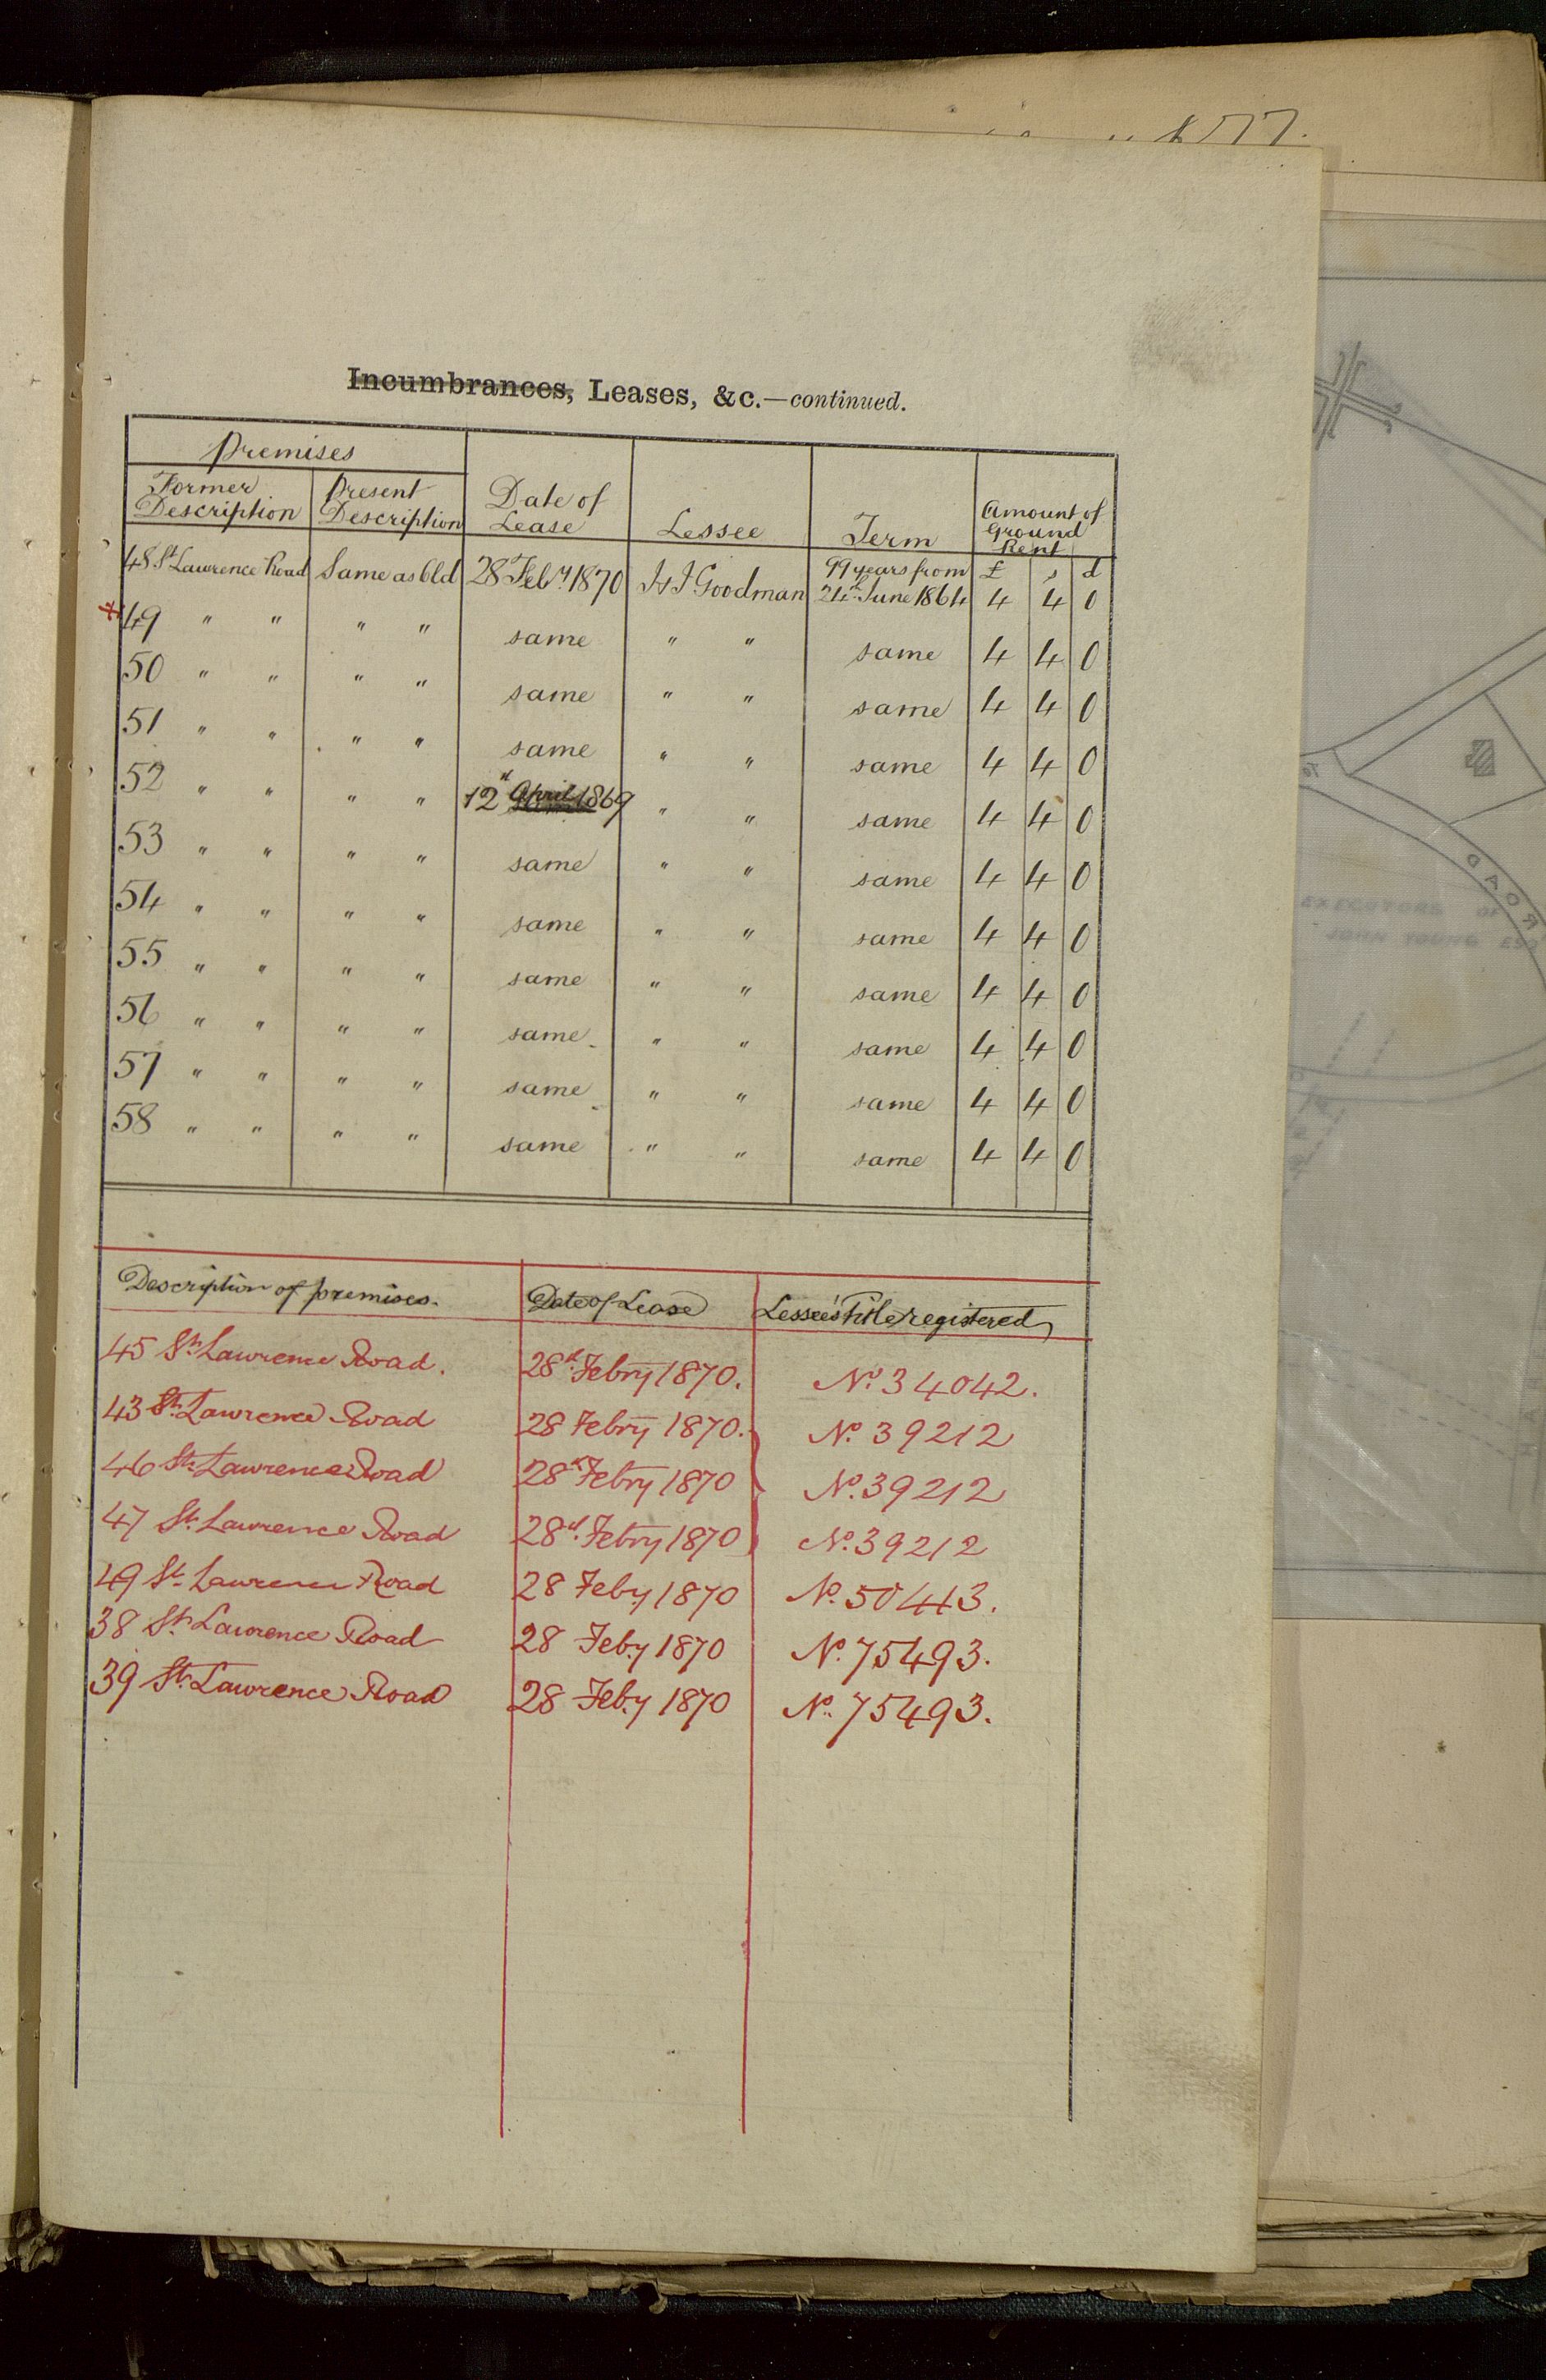 Incumbrances, Leases, &c.—continued.
Premises
Former Description | Present Description | Date of Lease | Lessee | Term | Amount of Ground Rent
99 years from £ s d
48 St Lawrence Road Same as Old 28 Feby 1870 H J Goodman 24th June 1864 4 4 0
49 " " " " same " " same 4 4 0
50 " " " " same " " same 4 4 0
51 " " " " same " " same 4 4 0
52 " " " " 12th April 1869 " " same 4 4 0
53 " " " " same " " same 4 4 0
54 " " " " same " " same 4 4 0
55 " " " " same " " same 4 4 0
56 " " " " same " " same 4 4 0
57 " " " " same " " same 4 4 0
58 " " " " same " " same 4 4 0
Description of premises. Date of Lease Lessee's Title registered
45 St. Lawrence Road. 28th Febry 1870. No. 34042.
43 St. Lawrence Road 28 Febry 1870. No. 39212
46 St. Lawrence Road 28th Febry 1870 No. 39212
47 St. Lawrence Road 28th Febry 1870 No. 39212
49 St. Lawrence Road 28 Feby 1870 No. 50443.
38 St. Lawrence Road 28 Feby 1870 No. 75493.
39 St. Lawrence Road 28 Feby 1870 No. 75493.
ROAD
EXECUTORS OF
JOHN YOUNG ESQ